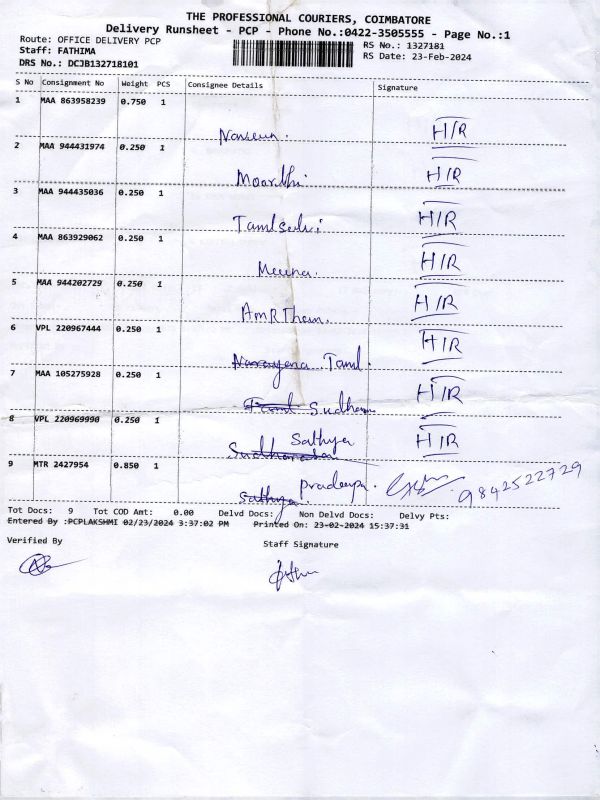 THE PROFESSIONAL COURIERS, COIMBATORE
Delivery Runsheet - PCP - Phone No.:0422-3505555 - Page No.:1
Route: OFFICE DELIVERY PCP RS No.: 1327181
Staff: FATHIMA RS Date: 23-Feb-2024
DRS No.: DCJB132718101
S No Consignment No Weight PCS Consignee Details Signature
1 MAA 863958239 0.750 1
H/R
2 MAA 944431974 0.250 1
Moorthi H/R
3 MAA 944435036 0.250 1
Tamilselvi H/R
4 MAA 863929062 0.250 1
Meena. H/R
5 MAA 944202729 0.250 1
AmRTham. H/R
6 VPL 220967444 0.250 1
Narayena Tamil. H/R
7 MAA 105275928 0.250 1
Tamil Sudham H/R
8 VPL 220969990 0.250 1
Sathya H/R
9 MTR 2427954 0.850 1
Sathya pradeepa. 9842522729
Tot Docs: 9 Tot COD Amt: 0.00 Delvd Docs: Non Delvd Docs: Delvy Pts:
Entered By :PCPLAKSHMI 02/23/2024 3:37:02 PM Printed On: 23-02-2024 15:37:31
Verified By Staff Signature